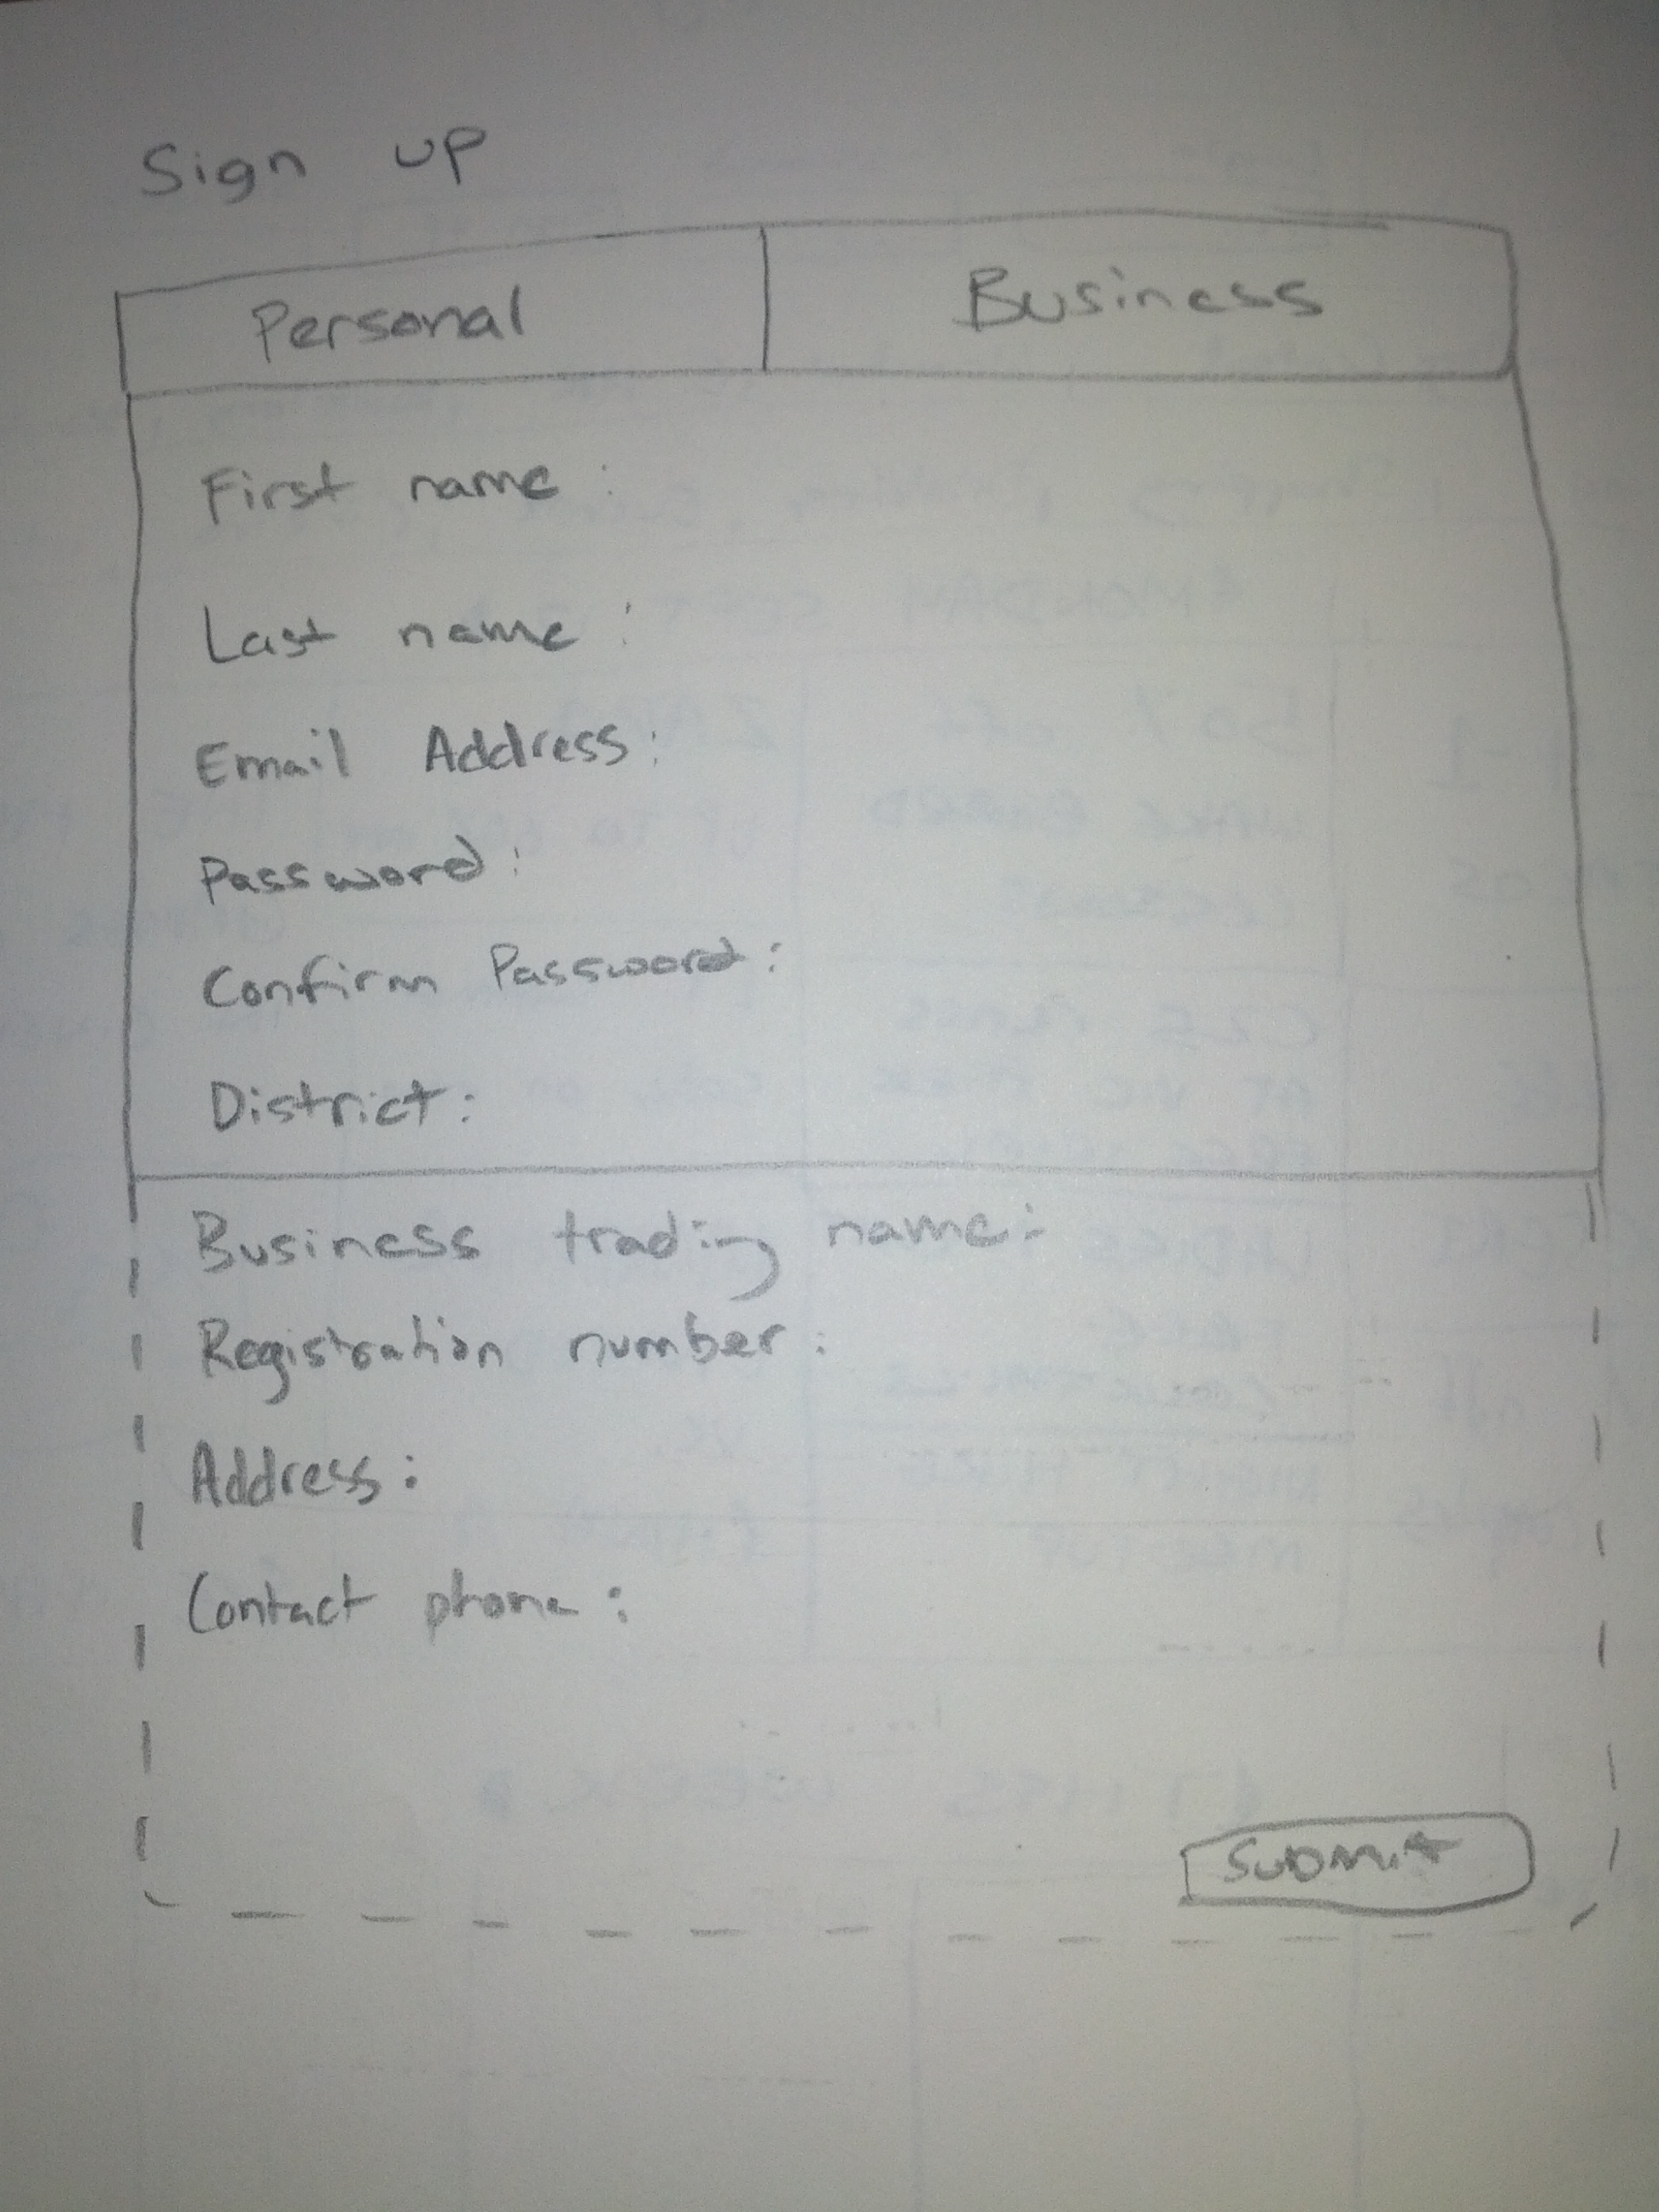 Sign up
Personal Business
First name :
Last name :
Email Address:
Password:
Confirm Password:
District:
Business trading name:
Registration number:
Address:
Contact phone:
Submit